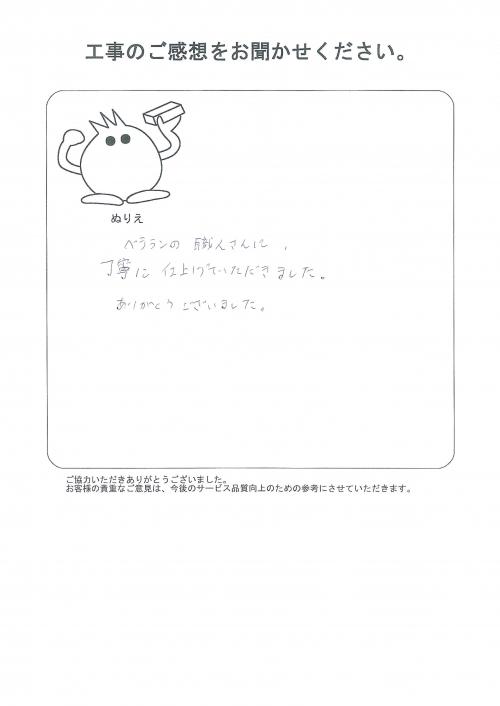 工事のご感想をお聞かせください。
ぬりえ
ベテランの 職人さんに、
丁寧に 仕上げていただきました。
ありがとう ございました。
ご協力いただきありがとうございました。
お客様の貴重なご意見は、今後のサービス品質向上のための参考にさせていただきます。